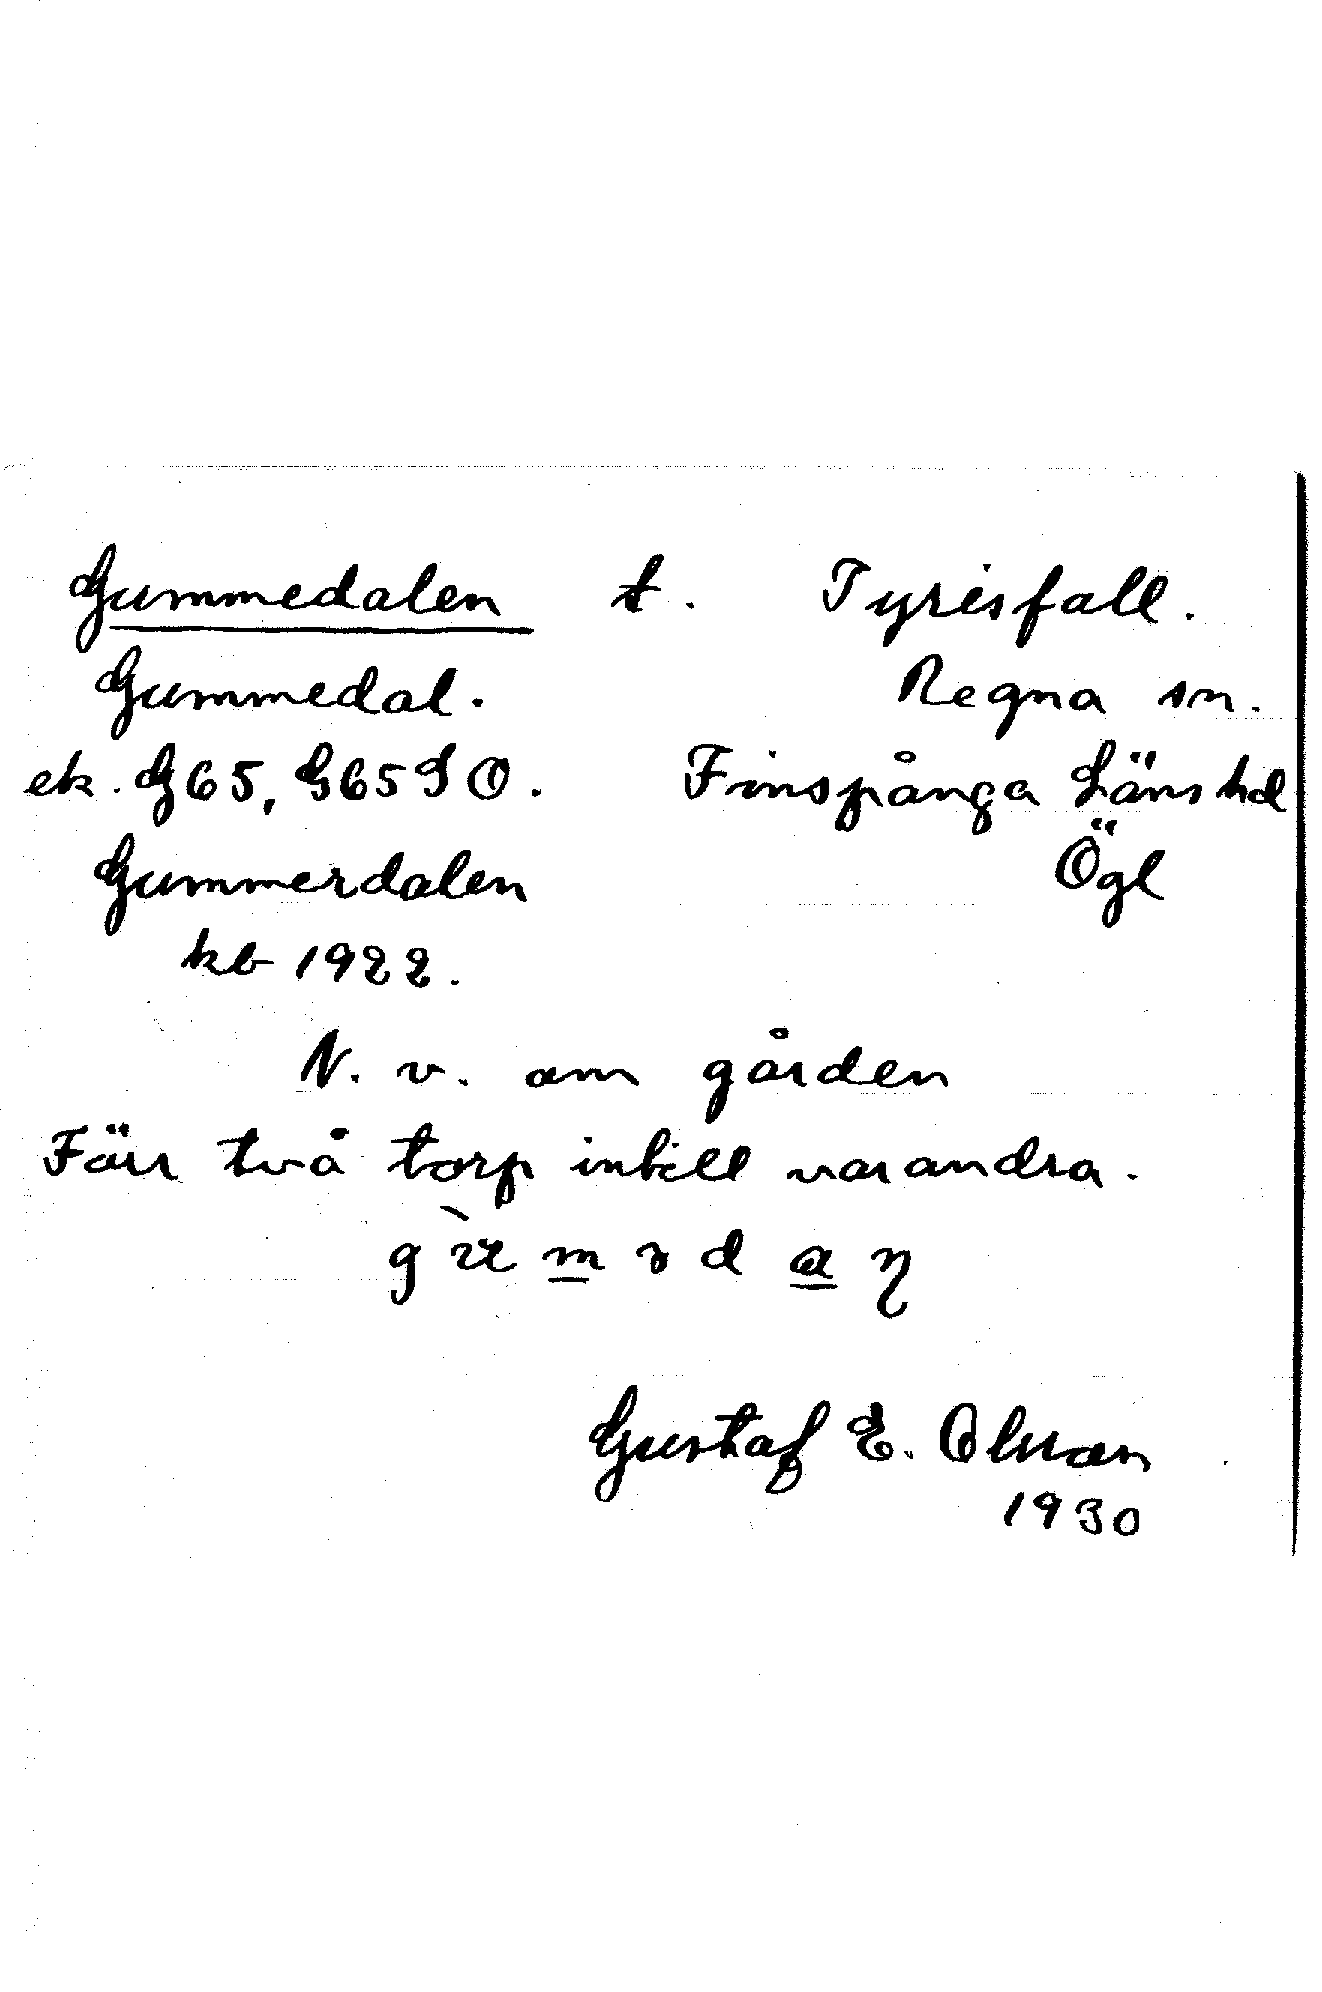 Gummedalen t. Tyrisfall.
Gummedal. Regna sn.
ek. G65, G65SO. Finspånga Läns hd
Gummerdalen Ögl
kb 1922.
N. v. om gården
Förr två torp intill varandra.
Gustaf E. Olman
1930